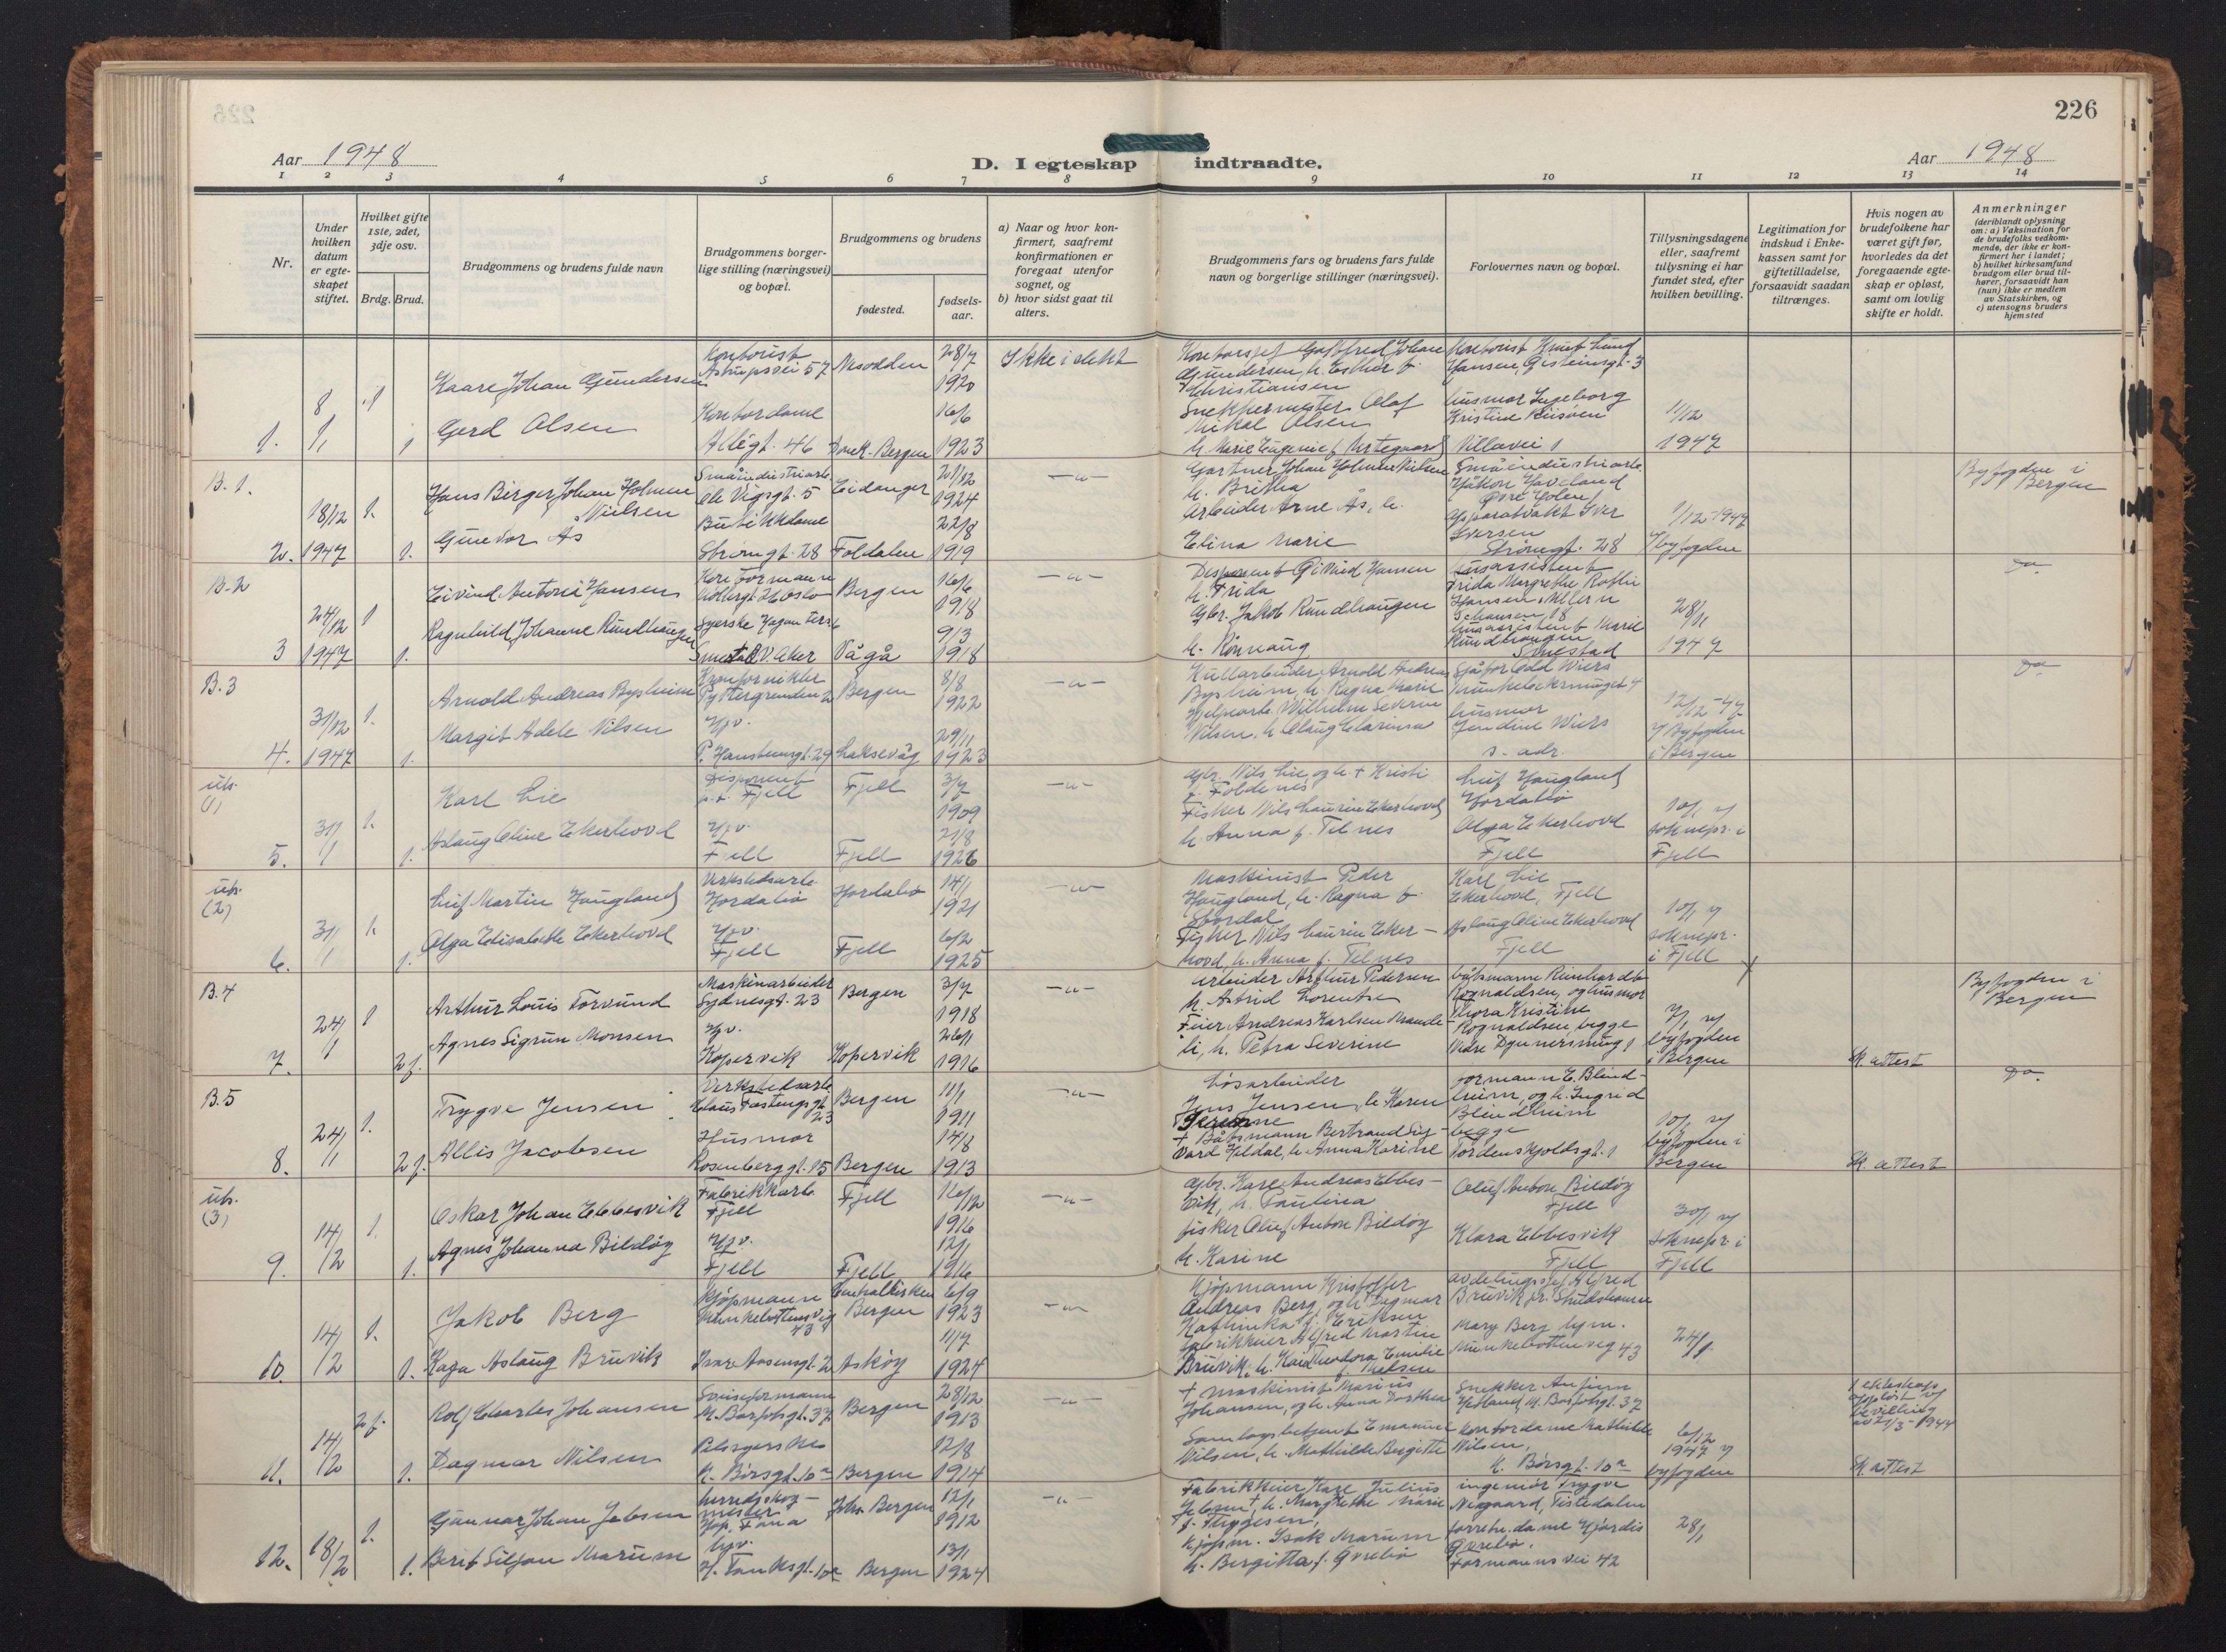 226
Aar 1948
D. I egteskap indtraadte.
Aar 1948
1 2 3 4 5 6 7 8 9 10 11 12 13 14
Nr.
Under hvilken datum er egteskapet stiftet.
Hvilket gifte 1ste, 2det, 3dje osv.
Brdg. Brud.
Brudgommens og brudens fulde navn
Brudgommens borgerlige stilling (næringsvei) og bopæl.
Brudgommens og brudens
fødested.
fødselsaar.
a) Naar og hvor konfirmert, saafremt konfirmationen er foregaat utenfor sognet, og
b) hvor sidst gaat til alters.
Brudgommens fars og brudens fars fulde navn og borgerlige stillinger (næringsvei).
Forlovernes navn og bopæl.
Tillysningsdagene eller, saafremt tillysning ei har fundet sted, efter hvilken bevilling.
Legitimation for indskud i Enkekassen samt for giftetilladelse, forsaavidt saadan tiltrænges.
Hvis nogen av brudefolkene har været gift før, hvorledes da det foregaaende egteskap er opløst, samt om lovlig skifte er holdt.
Anmerkninger
(deriblandt oplysning om: a) Vaksination for de brudefolks vedkommende, der ikke er konfirmert her i landet; b) hvilket kirkesamfund brudgom eller brud tilhører, forsaavidt han (hun) ikke er medlem av Statskirken, og c) utensogns bruders hjemsted
1. 8/1 1 1
Kaare Johan Gundersen
Kontorist Astrupsvei 57 Nesodden 28/7 1920 Ikke i slekt
Gerd Olsen
Kontordame Allégt. 46 Domk. Bergen 16/6 1923
Kontorsjef Gottfred Johan Gundersen, h. Esther f. Christiansen
Snekkermester Olaf Mikal Olsen
h. Marie Eugenie f. Urtegaard
Kontorist Knut Lund Hansen, Gisteinsgt. 3
husmor Ingeborg Kristine Riisøen Villavei 1
11/12 1947
B. 1. 2. 18/12 1947 1. 1.
Hans Birger Johan Holmen Nielsen
Småindustriarb. Ole Vigsgt. 5 Eidanger 21/12 1924 -"-
Gunvor Ås
Butikkdame Strømgt. 28 Foldalen 22/8 1919
Gartner Johan Holmen Nielsen h. Britha
Arbeider Arne Ås, h. Elina Marie
Småindustriarb. Håkon Haveland Øvre Holen
Apparatvakt Iver Iversen Strømgt. 28
1/12-1947 byfogden
Byfogden i Bergen
B. 2 3 24/12 1947 1 1.
Eivind Antoni Hansen
Bergen 16/6 1918 -"-
Ragnhild Johanne Rundhaugen
Smestad V. Aker Vågå 9/3 1918
Disponent Eivind Hansen h. Frida
Gbr. Jakob Rundhaugen h. Rønnaug
Smestad
28/11 1947
do.
B. 3 4. 31/12 1947 1. 1.
Arnold Andreas Bysheim
Bergen 8/8 1922 -"-
Margit Adele Nilsen
Hjv. P. Hansteensgt. 29 Laksevåg 29/11 1923
Kullarbeider Arnold Andreas Bysheim, h. Ragna Marie
Hjelpearb. Wilhelm Severin Nilsen, h. Olaug Clarina
Sjåfør Odd Wiers
husmor Jendine Wiers s. adr.
12/12-47 v/ Byfogden i Bergen
do.
ub. (1) 5. 31/1 1. 1.
Karl Lie
Disponent p.t. Fjell Fjell 3/7 1909 -"-
Aslaug Oline Ekerhovd
Hjv. Fjell Fjell 21/8 1926
Gbr. Nils Lie, og h. + Kristi f. Foldenes
Fisker Nils Laurin Ekerhovd h. Anna f. Telnes
Leif Haugland Hordabø
Olga Ekerhovd Fjell
10/1 v/ soknepr. i Fjell
ub. (2) 6. 31/1 1. 1.
Leif Martin Haugland
Verkstedsarb. Hordabø Hordabø 14/1 1921 -"-
Olga Elisabeth Ekerhovd
Hjv. Fjell Fjell 6/2 1925
Maskinist Peder Haugland, h. Ragna f. Stordal
Fisker Nils Laurin Ekerhovd, h. Anna f. Telnes
Karl Lie Ekerhovd, Fjell
Aslaug Oline Ekerhovd Fjell
10/1 v/ soknepr. i Fjell
B. 4 7. 24/1 1 2 f.
Arthur Louis Torvund
Maskinarbeider Sydnesgt. 23 Bergen 3/7 1918 -"-
Agnes Sigrun Monsen
Hjv. Kopervik Kopervik 26/1 1916
Arbeider Arthur Pedersen h. Astrid Lorentse
Feier Andreas Karlsen h. Petra Severine
båtsmann Reinhardt Rognaldsen, og husmor Thora Kristine Rognaldsen, begge
7/1 v/ byfogden i Bergen
Sk. attest
Byfogden i Bergen
B. 5 8. 24/1 1. 2 f.
Trygve Jensen
Verkstedsarb. Claus Fastingsgt. 23 Bergen 11/1 1911 -"-
Allis Jacobsen
Husmor Rosenberggt. 15 Bergen 14/8 1913
Løsarbeider Jens Jensen, h. Karen
+ Båtsmann Bertrand Sigvard Hildal, h. Anna Karine
Formann E. Blindheim, og h. Ingrid Blindheim begge Tordenskjoldsgt. 1
10/1 v/ byfogden i Bergen
Sk. attest
do.
ub. (3) 9. 14/2 1. 1.
Oskar Johan Ebbesvik
Fabrikkarb. Fjell Fjell 16/12 1916 -"-
Agnes Johanna Bildøy
Hjv. Fjell Fjell 12/1 1916
Gbr. Karl Andreas Ebbesvik, h. Paulina
fisker Oluf Anton Bildøy h. Karine
Oluf Anton Bildøy Fjell
Klara Ebbesvik Fjell
30/1 v/ soknepr. i Fjell
10. 14/2 1. 1.
Jakob Berg
Kjøpmann Munkebotnsveg 43 Bergen 6/9 1923 -"-
Kaja Aslaug Bruvik
Ivar Aasensgt. 2 Askøy 11/7 1924
Kjøpmann Kristoffer Andreas Berg, og h. Dagmar Kathinka f. Eriksen
Fabrikkeier Alfred Martin Bruvik, h. Kaia Theodora Emelie f. Nielsen
avdelingssjef Alfred Bruvik
Mary Berg Munkebotnsveg 43
24/1
11. 14/2 2 f. 1.
Rolf Charles Johansen
Bergen 28/12 1913 -"-
Dagmar Nilsen
Pelssyerske Bergen 12/8 1914
+ maskinist Marius Johansen, og h. Anna Dorthea
Emanuel Nilsen, h. Mathilde Bergitte
Snekker
kontordame Mathilde Nilsen,
6/12 1947 v/ byfogden
1. ekteskap oppløst v/ bevilling av 21/3-1944
Sk. attest
12. 18/2 1. 1.
Gunnar Johan Jebsen
herredsskogmester Hop, Fana Joh. Bergen 12/1 1912 -"-
Berit Siljan Marum
hjv. Bergen 13/1 1924
Fabrikkeier Karl Julius Jebsen +, h. Margrethe Marie f. Thygesen,
Kjøpm. Isak Marum h. Bergitta f. Gvrebø
ingeniør Trygve Nergaard, Tistedalen
forretn. dame Hjørdis Formannsvei 42
28/1